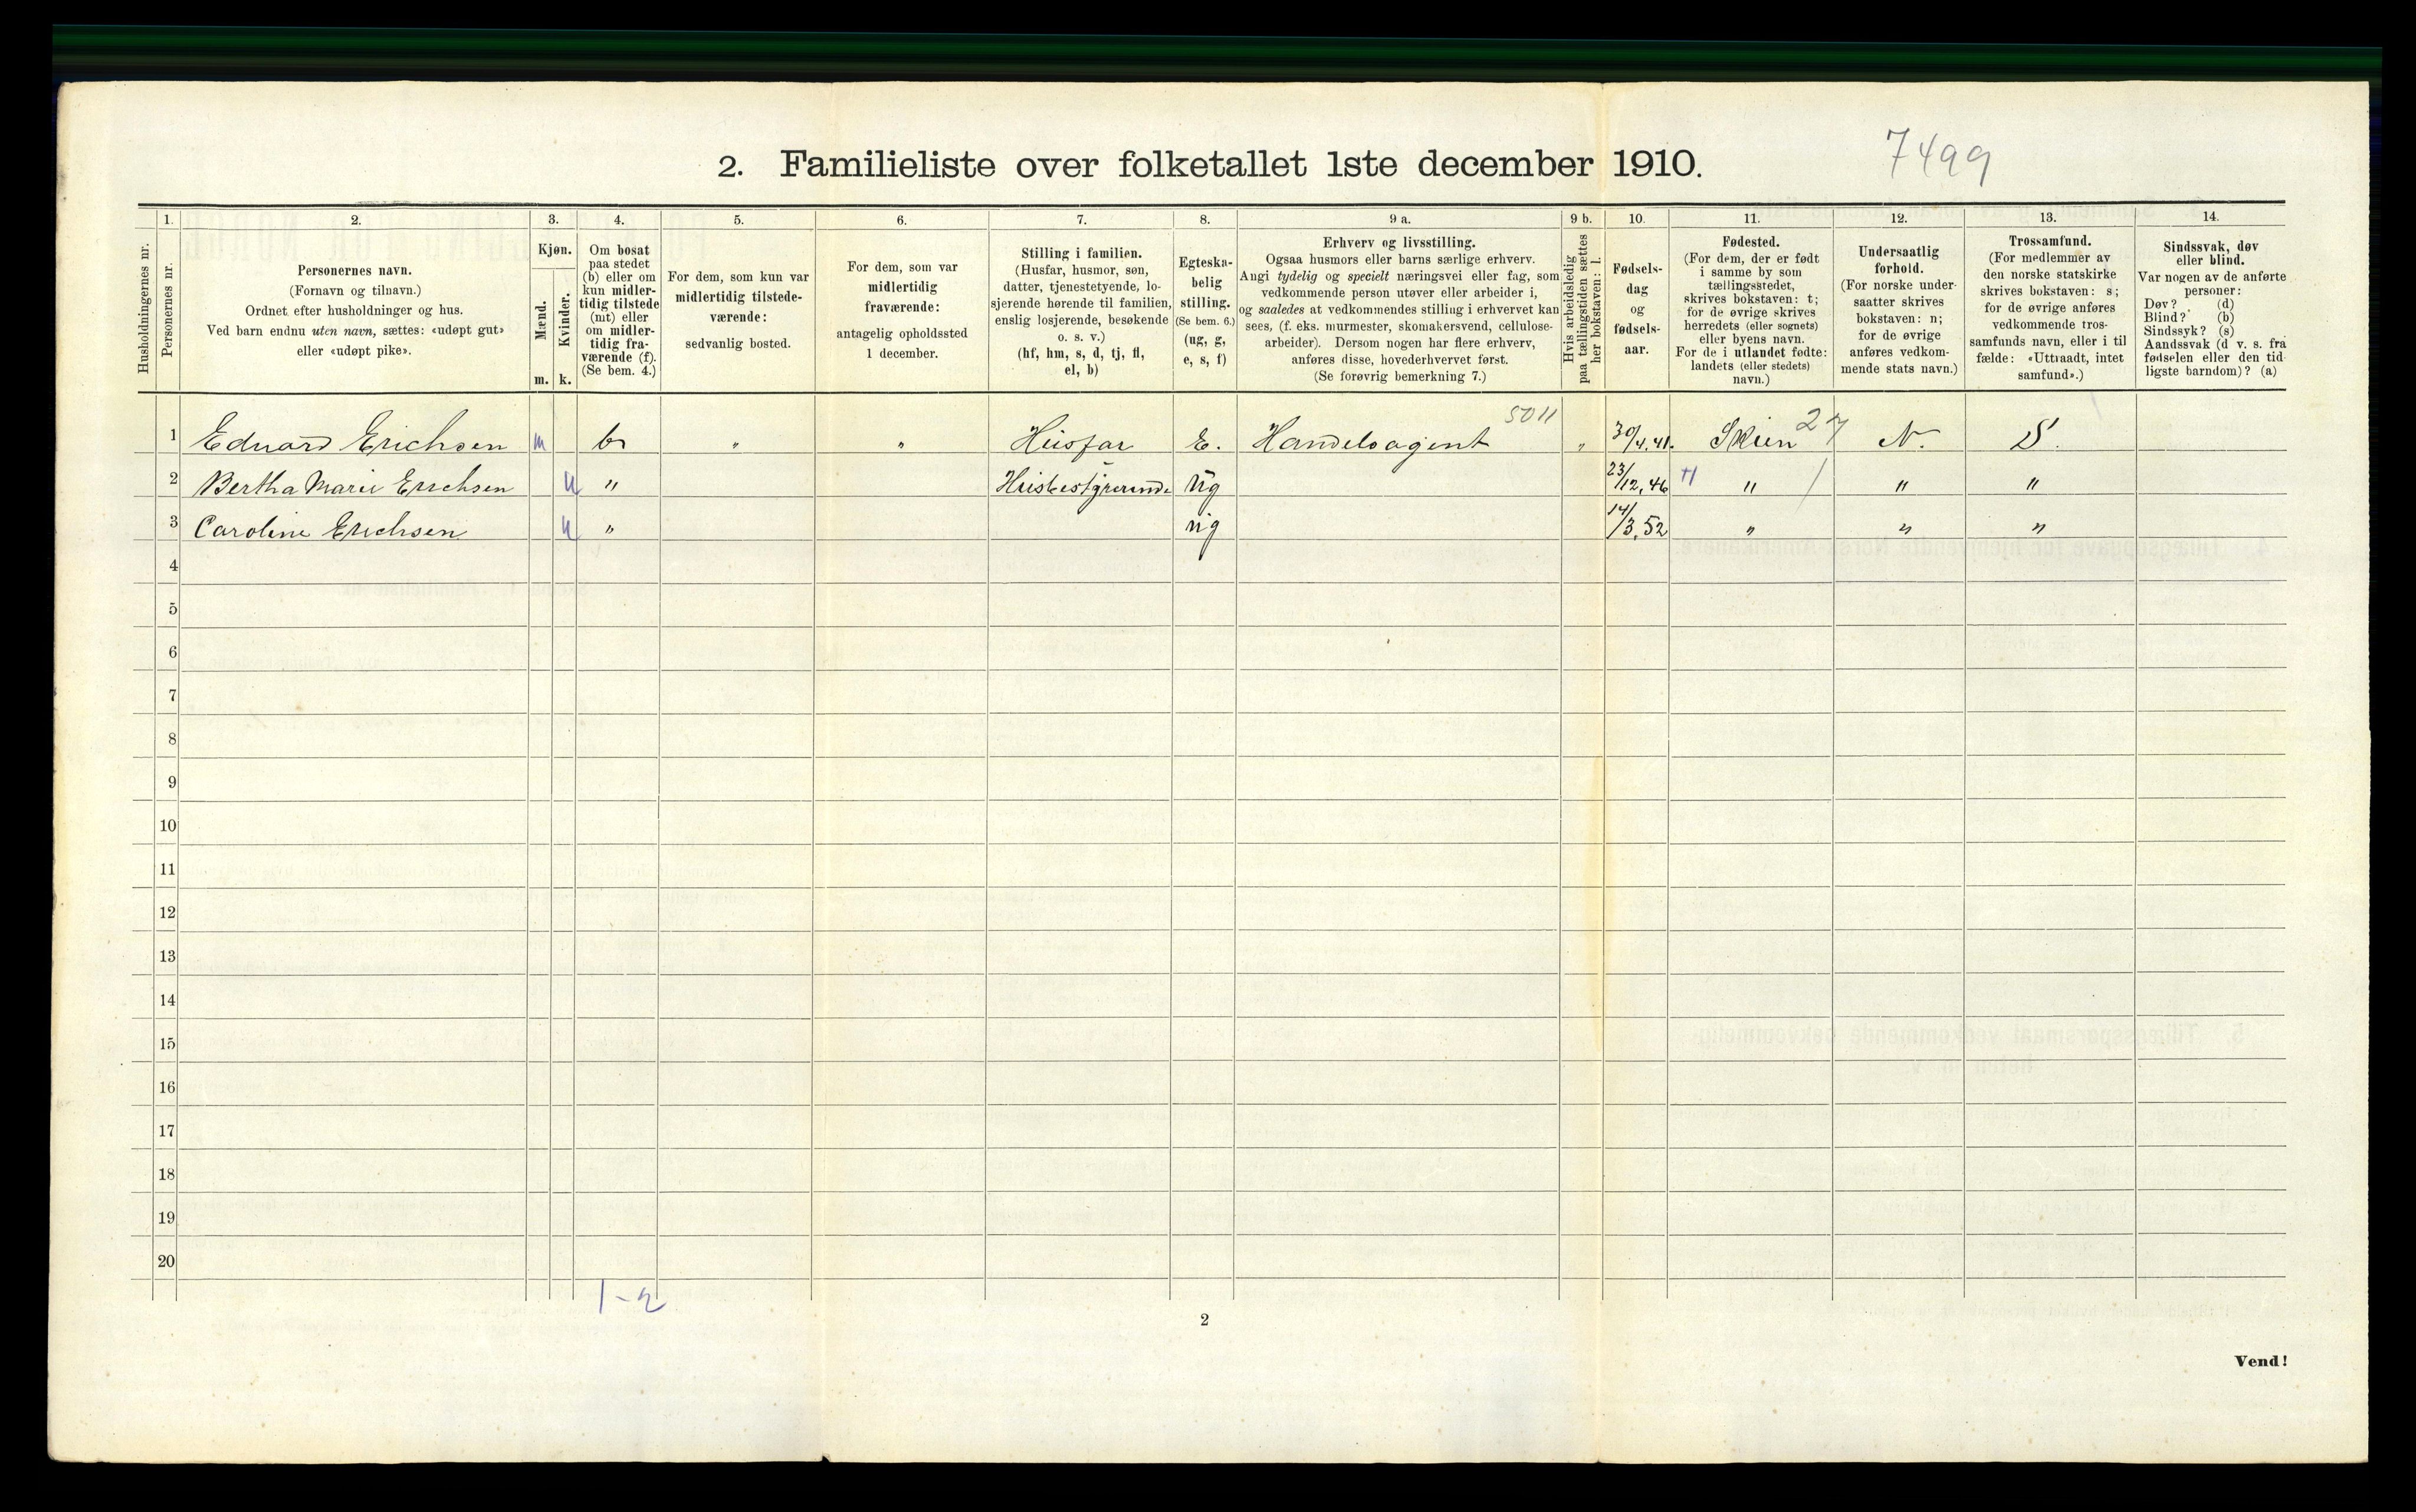 2. Familieliste over folketallet 1ste december 1910.
7499
Husholdningernes nr.
1.
Personernes nr.
2.
Personernes navn.
(Fornavn og tilnavn.)
Ordnet efter husholdninger og hus.
Ved barn endnu uten navn, sættes: «udøpt gut»
eller «udøpt pike».
3.
Kjøn.
Mænd.
Kvinder.
m.
k.
4.
Om bosat
paa stedet
(b) eller om
kun midler-
tidig tilstede
(mt) eller
om midler-
tidig fra-
værende (f).
(Se bem. 4.)
5.
For dem, som kun var
midlertidig tilstede-
værende:
sedvanlig bosted.
6.
For dem, som var
midlertidig
fraværende:
antagelig opholdssted
1 december.
7.
Stilling i familien.
(Husfar, husmor, søn,
datter, tjenestetyende, lo-
sjerende hørende til familien,
enslig losjerende, besøkende
o. s. v.)
(hf, hm, s, d, tj, fl,
el, b)
8.
Egteska-
belig
stilling.
(Se bem. 6.)
(ug, g,
e, s, f)
9 a.
Erhverv og livsstilling.
Ogsaa husmors eller barns særlige erhverv.
Angi tydelig og specielt næringsvei eller fag, som
vedkommende person utøver eller arbeider i,
og saaledes at vedkommendes stilling i erhvervet kan
sees, (f. eks. murmester, skomakersvend, cellulose-
arbeider). Dersom nogen har flere erhverv,
anføres disse, hovederhvervet først.
(Se forøvrig bemerkning 7.)
9 b.
Hvis arbeidsledig
paa tællingstiden sættes
her bokstaven: l.
10.
Fødsels-
dag
og
fødsels-
aar.
11.
Fødested.
(For dem, der er født
i samme by som
tællingsstedet,
skrives bokstaven: t;
for de øvrige skrives
herredets (eller sognets)
eller byens navn.
For de i utlandet fødte:
landets (eller stedets)
navn.)
12.
Undersaatlig
forhold.
(For norske under-
saatter skrives
bokstaven: n;
for de øvrige
anføres vedkom-
mende stats navn.)
13.
Trossamfund.
(For medlemmer av
den norske statskirke
skrives bokstaven: s;
for de øvrige anføres
vedkommende tros-
samfunds navn, eller i til
fælde: «Uttraadt, intet
samfund».)
14.
Sindssvak, døv
eller blind.
Var nogen av de anførte
personer:
Døv? (d)
Blind? (b)
Sindssyk? (s)
Aandssvak (d v. s. fra
fødselen eller den tid
ligste barndom)? (a)
1 Eduard Erichsen m b " " Husfar E. Handelsagent 5011 " 30/4.41. Skien 27 N. S.
2 Bertha Marie Erichsen k " Husbestyrerinde ug 23/12,46 " " "
3 Caroline Erichsen k " ug 14/3,52 " " "
4
5
6
7
8
9
10
11
12
13
14
15
16
17
18
19
20
1-2
2
Vend!